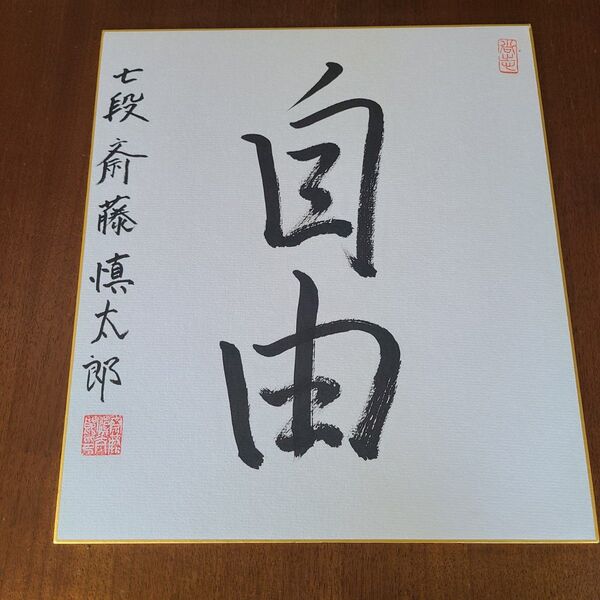 自由
七段 斎藤慎太郎